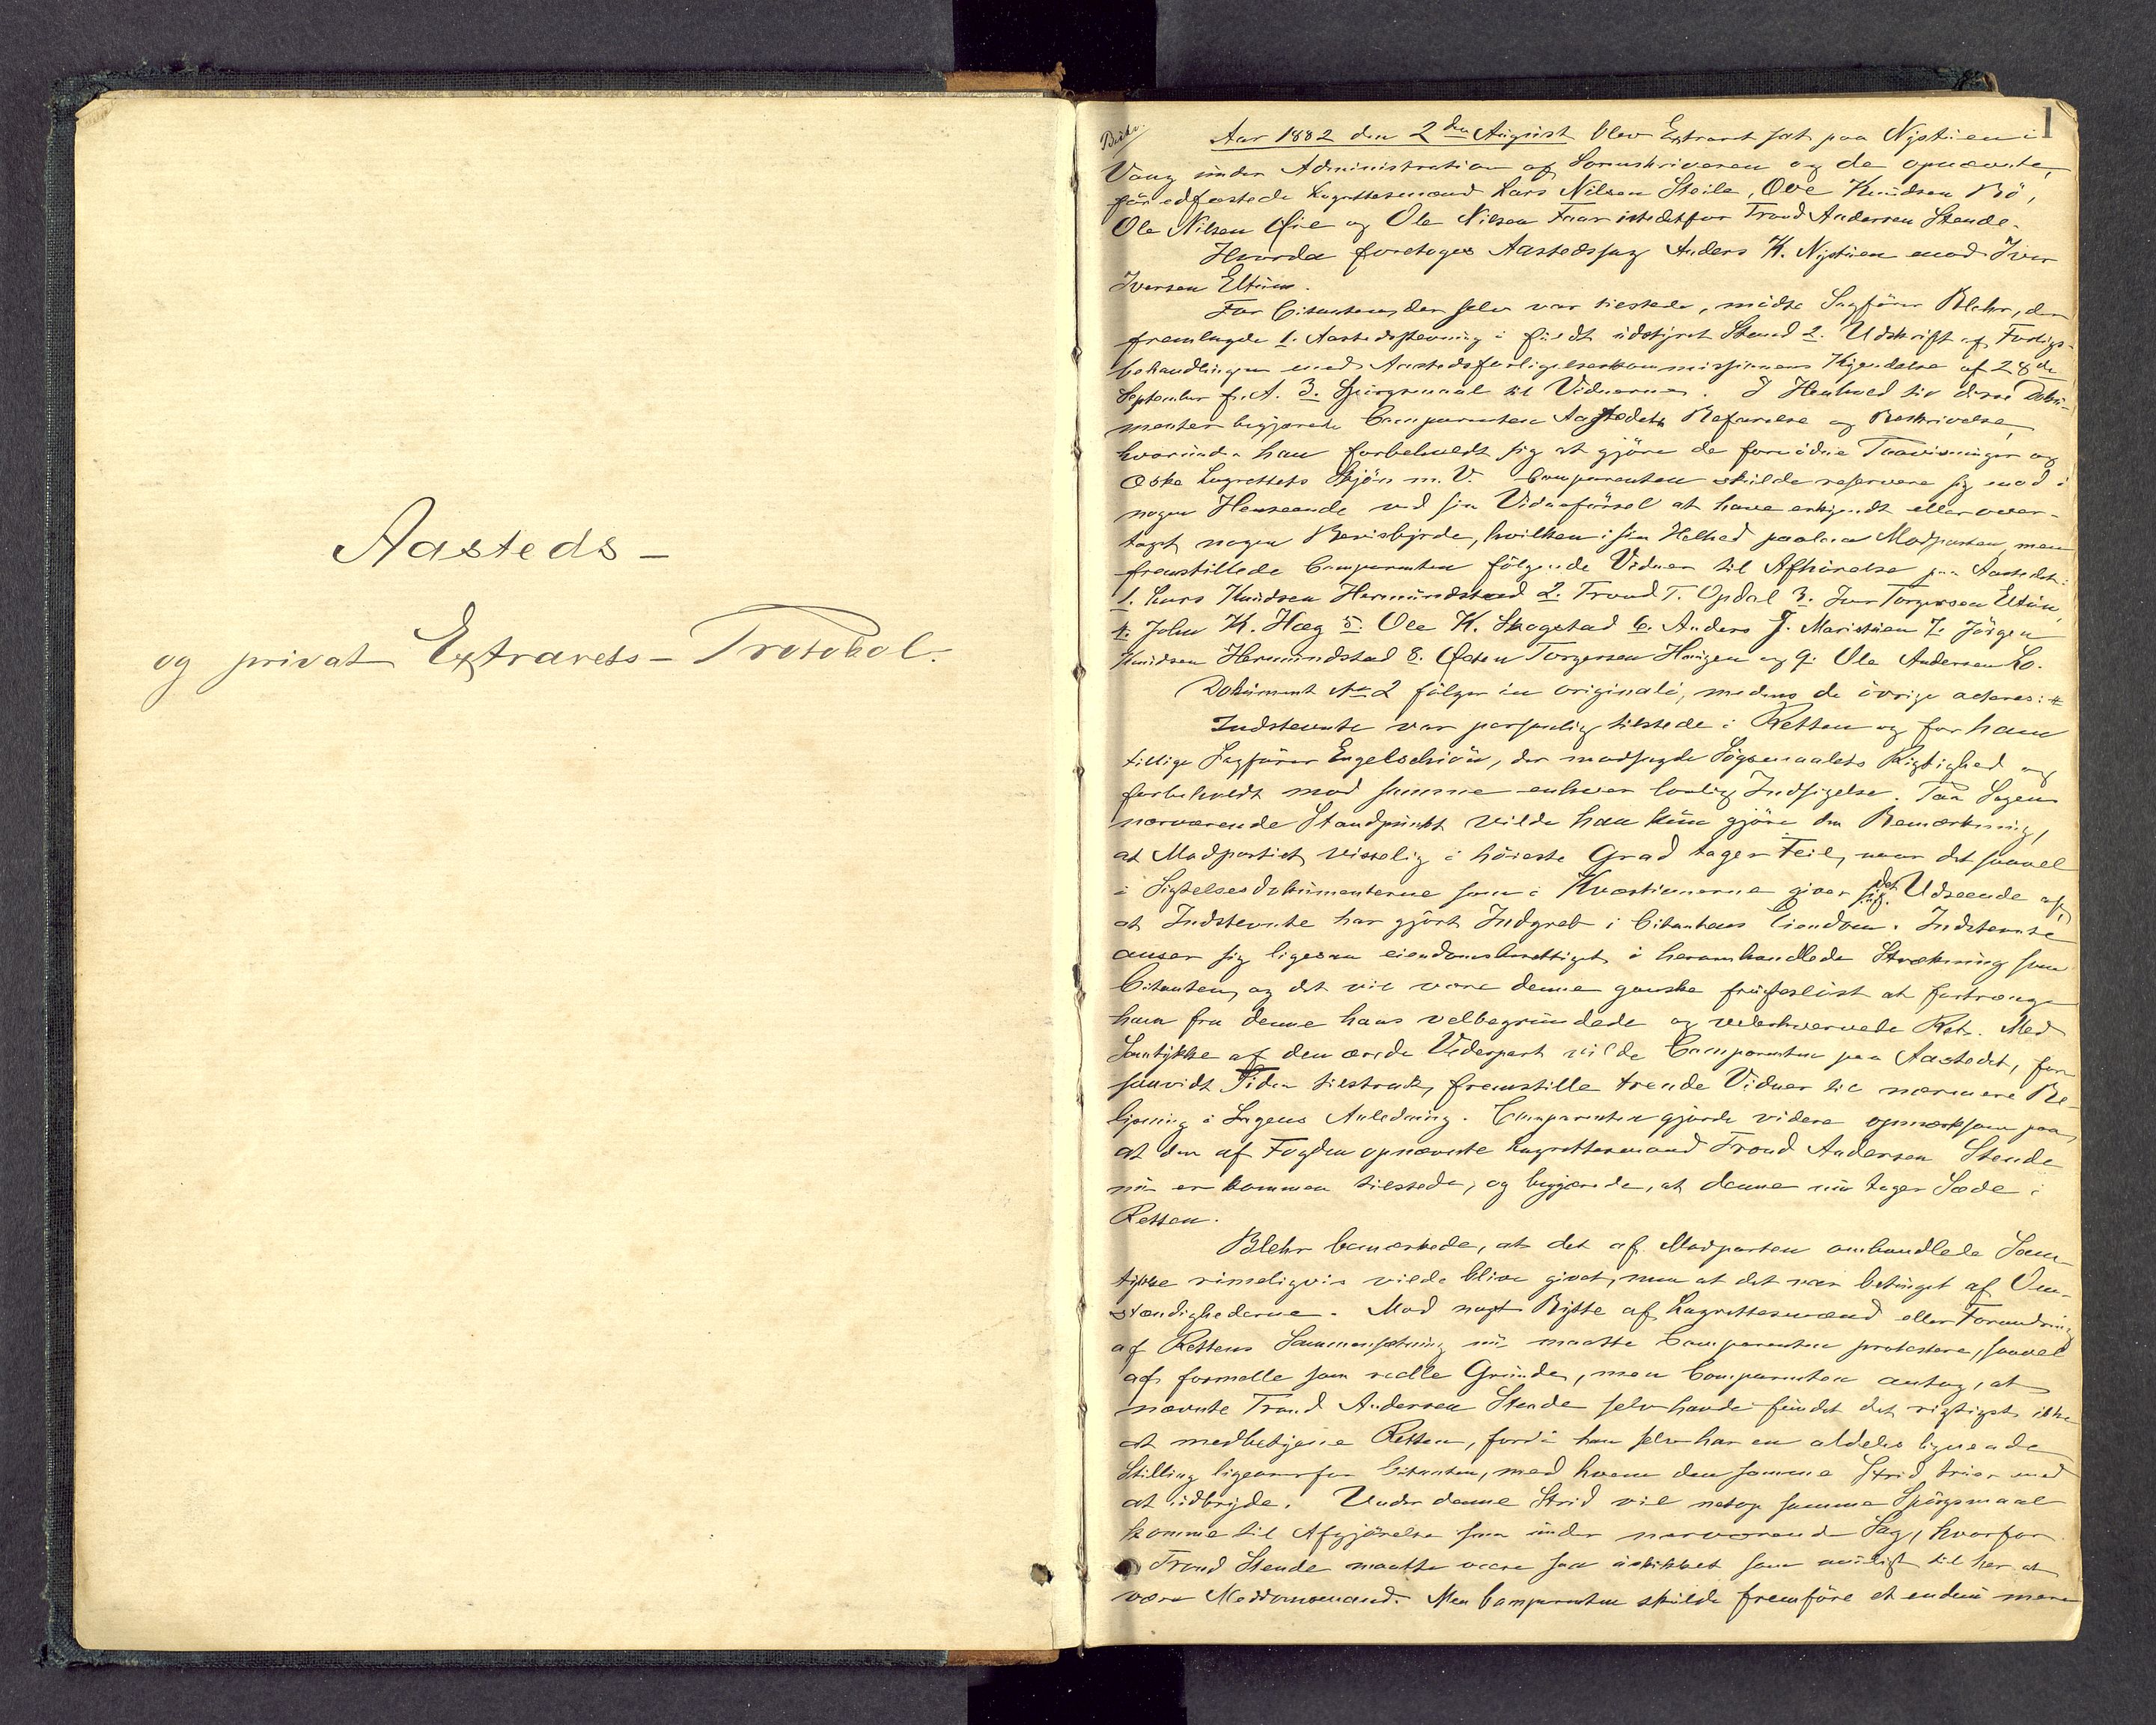 Aasteds-
og privat Extrarets-Protokol.
1
Aar 1882 den 2den August blev Extraret sat paa Nystuen i
Vang under Administration af Sorenskriveren og de opnævnte,
før edfæstede Lagrettesmænd Lars Nilsen Steile, Ove Knudsen Bö,
Ole Nilsen Øie og Ole Nilsen Faar istedetfor Trond Andersen Stende.
Hvorda foretoges Aastedssag Anders K. Nystuen mod Iver
Iversen Eltun.
For Citanten, der selv var tilstede, mødte Sagfører Blehr, der
fremlagde 1. Aastedsstevning i fuldt udstyret Stand 2. Udskrift af Forligs-
behandlingen med Aastedsforligelseskommissionens Kjendelse af 28de
September f. A. 3. Spørgsmaal til Vidnerne. I Henhold til disse Doku-
menter begjærede Comparenten Aastedets Befarelse og Beskrivelse,
hvorunder han forbeholdt sig at gjøre de fornødne Paavisninger og
æske Lagrettets Skjøn m. V. Comparenten skulde reservere sig mod i
nogen Henseende ved sin Vidneførsel at have erkjendt eller over-
taget nogen Bevisbyrde, hvilken i sin Helhed paalaa Modparten, men
fremstillede Comparenten følgende Vidner til Afhørelse paa Aastedet:
1. Lars Knudsen Hermundstad 2. Trond T. Opdal 3. Iver Torgersen Eltun,
4. John K. Hæg 5. Ole K. Skogstad 6. Anders J. Maristuen 7. Jörgen
Knudsen Hermundstad 8. Østen Torgersen Haugen og 9. Ole Andersen Lo.
Dokument No 2 følger in originali, medens de øvrige acteres: #
Indstevnte var personlig tilstede i Retten og for ham
tillige Sagfører Engelschiøn, der modsagde Søgsmaalets Rigtighed og
forbeholdt mod samme enhver lovlig Indsigelse. Paa Sagens
nærværende Standpunkt vilde han kun gjøre den Bemærkning,
at Modpartiet visselig i høieste Grad tager Feil, naar det saavel
i Sigtelsesdokumenterne som i Kvæstionerne giver sig det Udseende af,
at Indstevnte har gjort Indgreb i Citantens Eiendom. Indstevnte
anser sig ligesaa eiendomsberettiget i heromhandlede Strækning som
Citanten, og det vil være denne ganske frugtesløst at fortrænge
ham fra denne hans velbegrundede og velerhvervede Ret. Med
Samtykke af den ærede Vederpart vilde Comparenten paa Aastedet, for
saavidt Tiden tilstrak, fremstille trende Vidner til nærmere Be-
lysning i Sagens Anledning. Comparenten gjorde videre opmærksom paa,
at den af Fogden opnævnte Lagrettesmand Trond Andersen Stende
nu er kommen tilstede, og begjærede, at denne nu tager Sæde i
Retten.
Blehr bemærkede, at det af Modparten omhandlede Sam-
tykke rimeligvis vilde blive givet, men at det var betinget af Om-
stændighederne. Mod noget Bytte af Lagrettesmænd eller Forandring
af Rettens Sammensætning nu maatte Comparenten protestere, saavel
af formelle som reelle Grunde, men Comparenten antog, at
nævnte Trond Andersen Stende selv havde fundet det rigtigst ikke
at medbetjene Retten, fordi han selv har en aldeles lignende
Stilling ligeoverfor Citanten, med hvem den samme Strid truer med
at udbryde. Under denne Strid vil netop samme Spørgsmaal
komme til Afgjørelse som under nærværende Sag, hvorfor
Trond Stende maatte være saa uskikket som muligt til her at
være Meddomsmand. Men Comparenten skulde fremføre et endnu mere